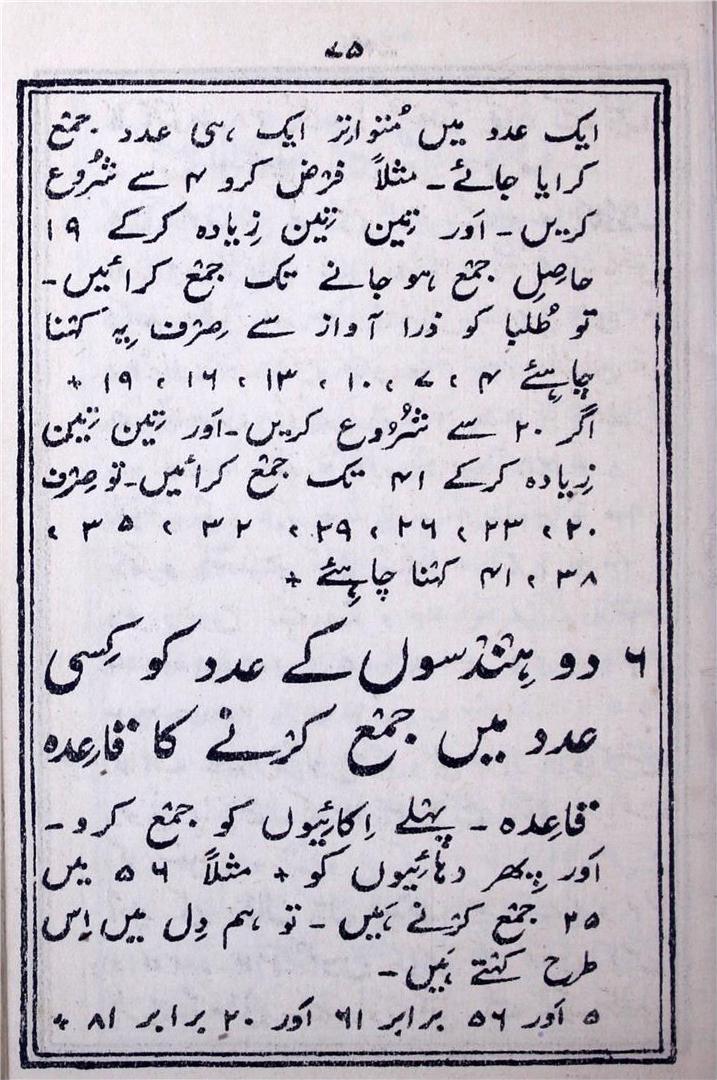 ۷۵
ایک عدد میں مُتَواتِر ایک ہی عدد جمْع
کرایا جائے۔ مثلاً فرْض کرو ۴ سے شُرُوع
کریں۔ اَور تِین تِین زِیادہ کرکے ۱۹
حاصِلِ جمْع ہو جانے تک جمْع کرائیں۔
تو طُلبا کو ذرا آواز سے صِرْف یِہ کہْنا
چاہِئے ۴ ، ۷ ، ۱۰ ، ۱۳ ، ۱۶ ، ۱۹ +
اگر ۲۰ سے شُرُوع کریں۔ اَور تِین تِین
زِیادہ کرکے ۴۱ تک جمْع کرائیں۔ تو صِرْف
۲۰ ، ۲۳ ، ۲۶ ، ۲۹ ، ۳۲ ، ۳۵ ،
۳۸ ، ۴۱ کہْنا چاہِئے +
۶ دو ہِنْدسوں کے عدد کو کِسی
عدد میں جمْع کرْنے کا قاعِدہ
قاعِدہ ۔ پہلے اِکائِیوں کو جمْع کرو۔
اَور پِھر دہائِیوں کو + مثلاً ۵۶ میں
۲۵ جمْع کرْنے ہَیں ۔ تو ہم دِل میں اِس
طرح کہْتے ہَیں۔
۵ اَور ۵۶ برابر ۶۱ اَور ۲۰ برابر ۸۱ +